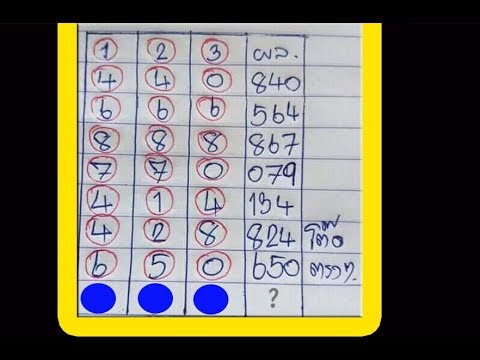 1 2 3 ผล.
4 4 0 840
6 6 6 564
8 8 8 867
7 7 0 079
4 1 4 134
4 2 8 824 โต๊ด
6 5 0 650 ตรงๆ
?